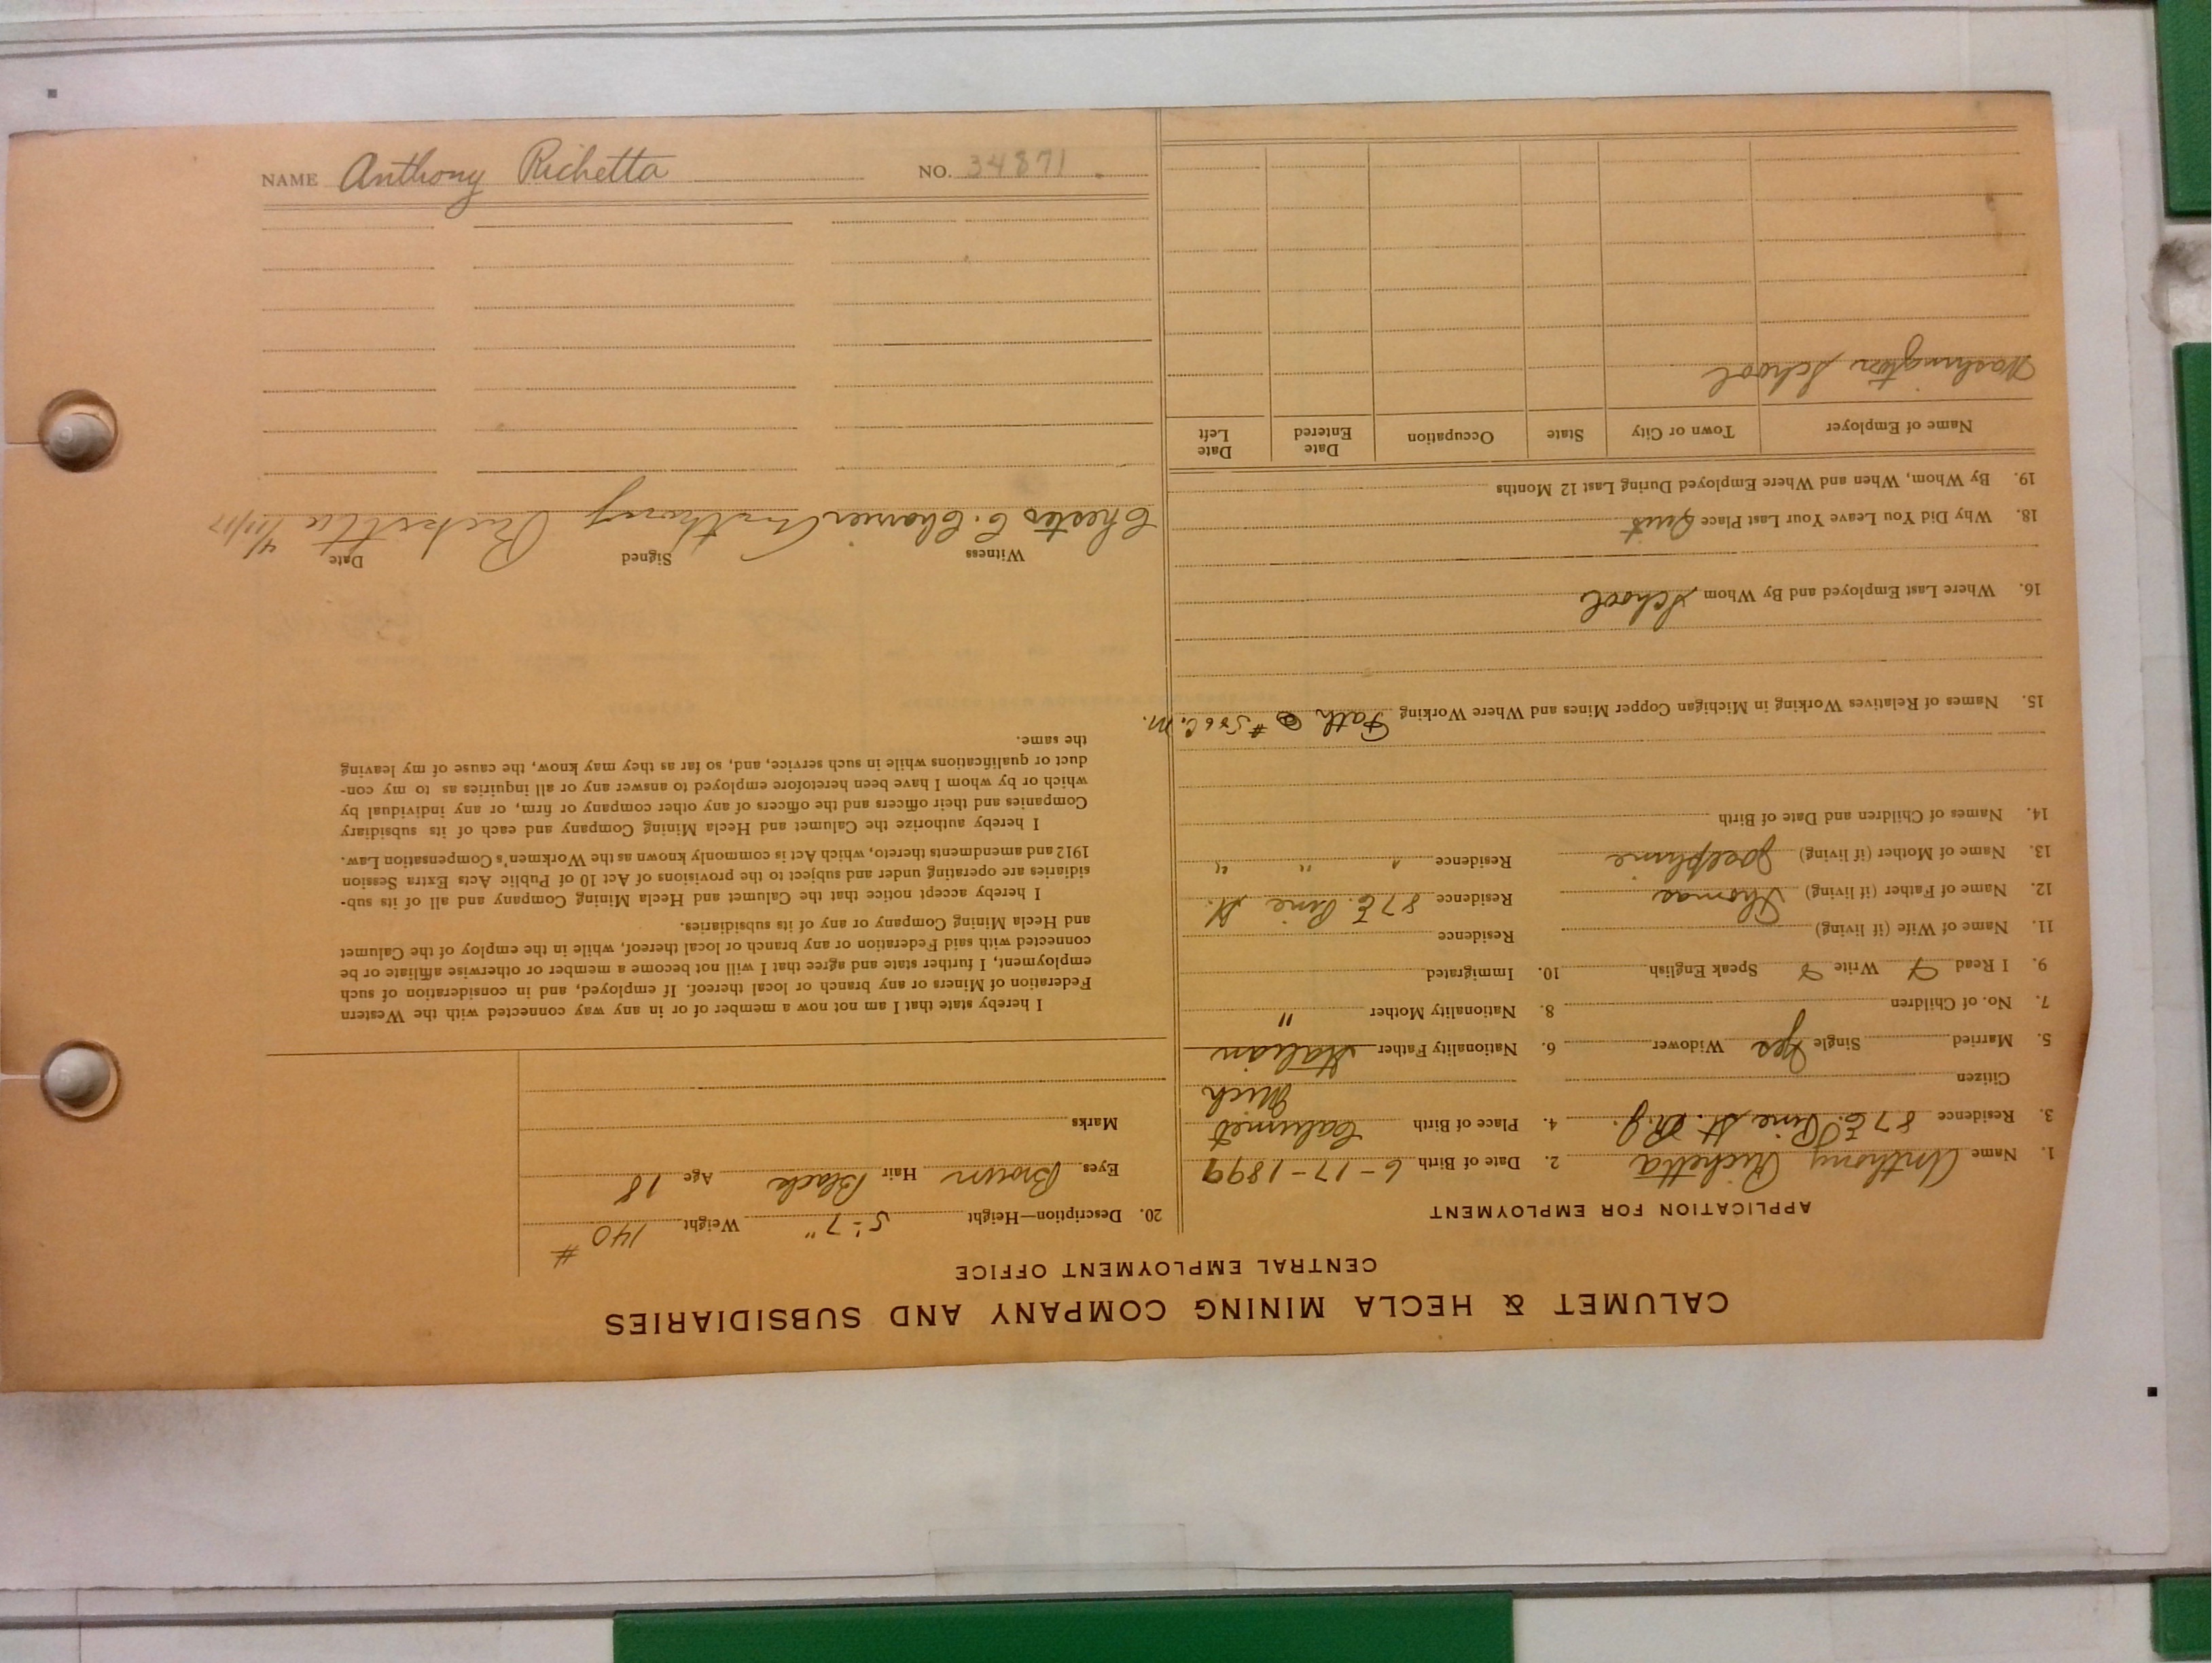 CALUMET & HECLA MINING COMPANY AND SUBSIDIARIES
CENTRAL EMPLOYMENT OFFICE
APPLICATION FOR EMPLOYMENT
1. Name Anthony Richetta 2. Date of Birth 6-17-1899
3. Residence 87 E. Pine St. R.J. 4. Place of Birth Calumet
Mich
Citizen
5. Married Single Yes Widower 6. Nationality Father Italian
7. No. of Children 8. Nationality Mother "
9. I Read Write Speak English 10. Immigrated
11. Name of Wife (if living) Residence
12. Name of Father (if living) Thomas Residence 87 E. Pine St.
13. Name of Mother (if living) Josephine Residence " " "
14. Names of Children and Date of Birth
15. Names of Relatives Working in Michigan Copper Mines and Where Working Fath C.M.
16. Where Last Employed and By Whom School
18. Why Did You Leave Your Last Place Quit
19. By Whom, When and Where Employed During Last 12 Months
Name of Employer Town or City State Occupation Date Entered Date Left
Washington School
20. Description—Height 5'-7" Weight 140 #
Eyes Brown Hair Black Age 18
Marks
I hereby state that I am not now a member of or in any way connected with the Western
Federation of Miners or any branch or local thereof. If employed, and in consideration of such
employment, I further state and agree that I will not become a member or otherwise affiliate or be
connected with said Federation or any branch or local thereof, while in the employ of the Calumet
and Hecla Mining Company or any of its subsidiaries.
I hereby accept notice that the Calumet and Hecla Mining Company and all of its sub-
sidiaries are operating under and subject to the provisions of Act 10 of Public Acts Extra Session
1912 and amendments thereto, which Act is commonly known as the Workmen's Compensation Law.
I hereby authorize the Calumet and Hecla Mining Company and each of its subsidiary
Companies and their officers and the officers of any other company or firm, or any individual by
which or by whom I have been heretofore employed to answer any or all inquiries as to my con-
duct or qualifications while in such service, and, so far as they may know, the cause of my leaving
the same.
Witness Signed Date
Chester C. Anthony Richetta
NAME Anthony Richetta NO. 34871